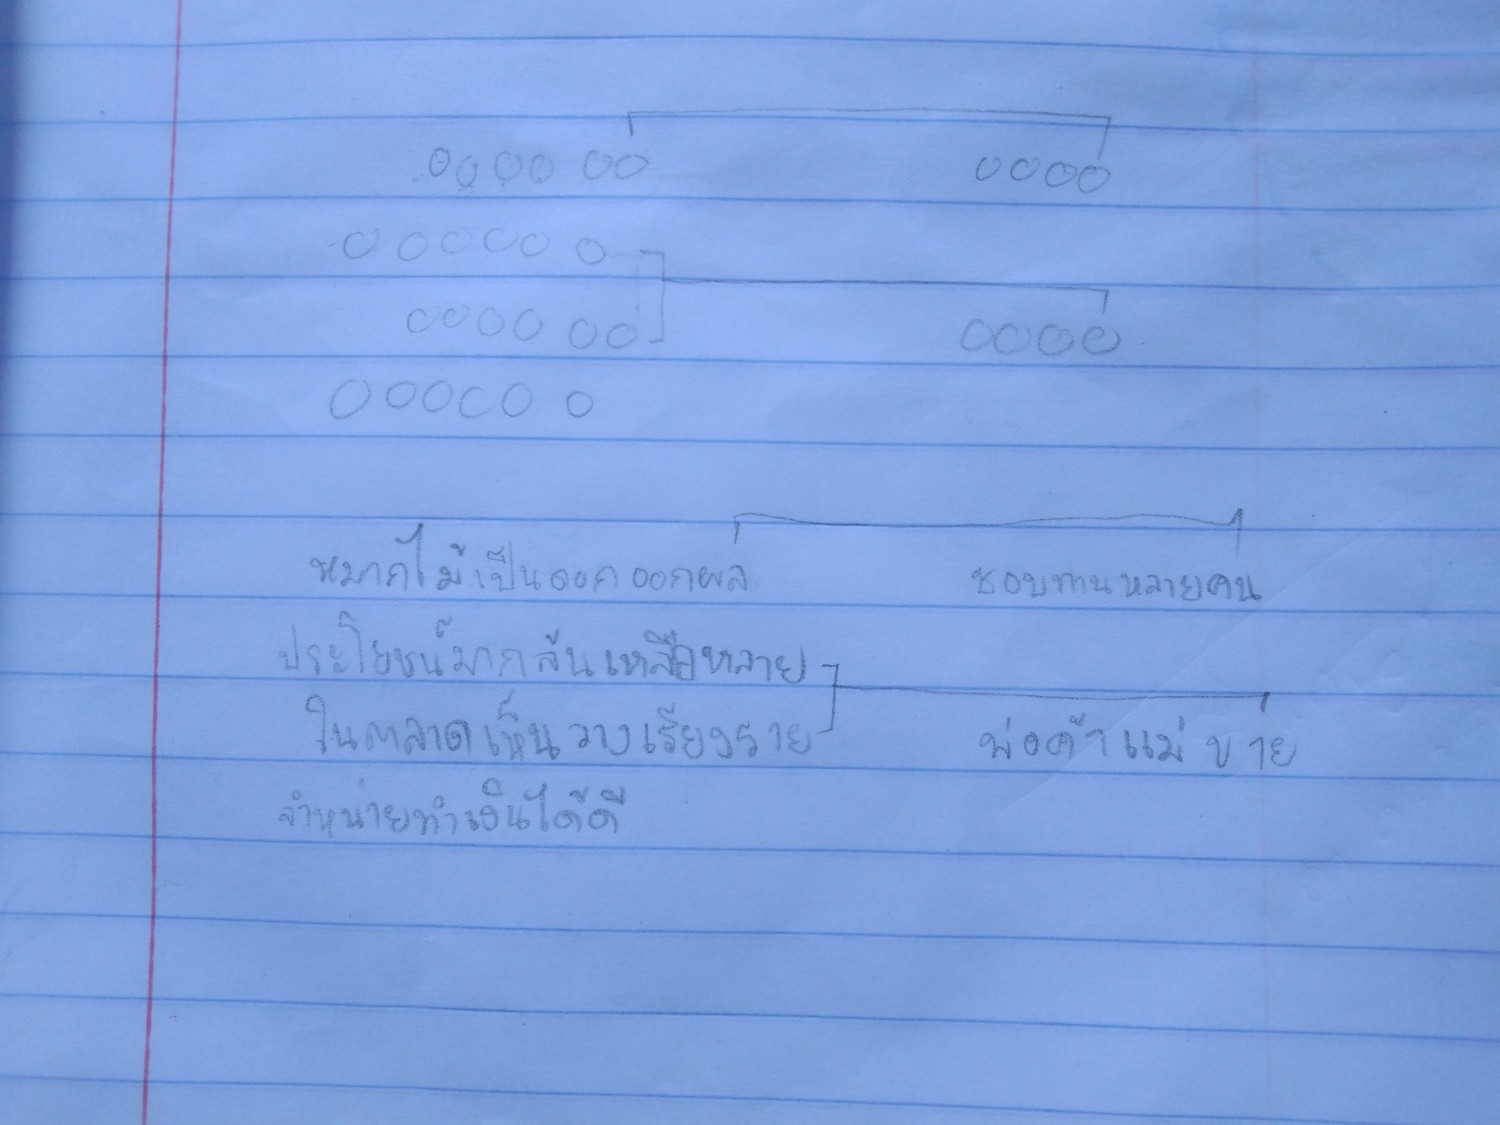 oooo oo oooo
ooooo o
oooo oo oooo
ooooo o
หมากไม้เป็นดอกออกผล ชอบทานหลายคน
ประโยชน์มากล้นเหลือหลาย
ในตลาดเห็นวางเรียงราย พ่อค้าแม่ขาย
จำหน่ายทำเงินได้ดี